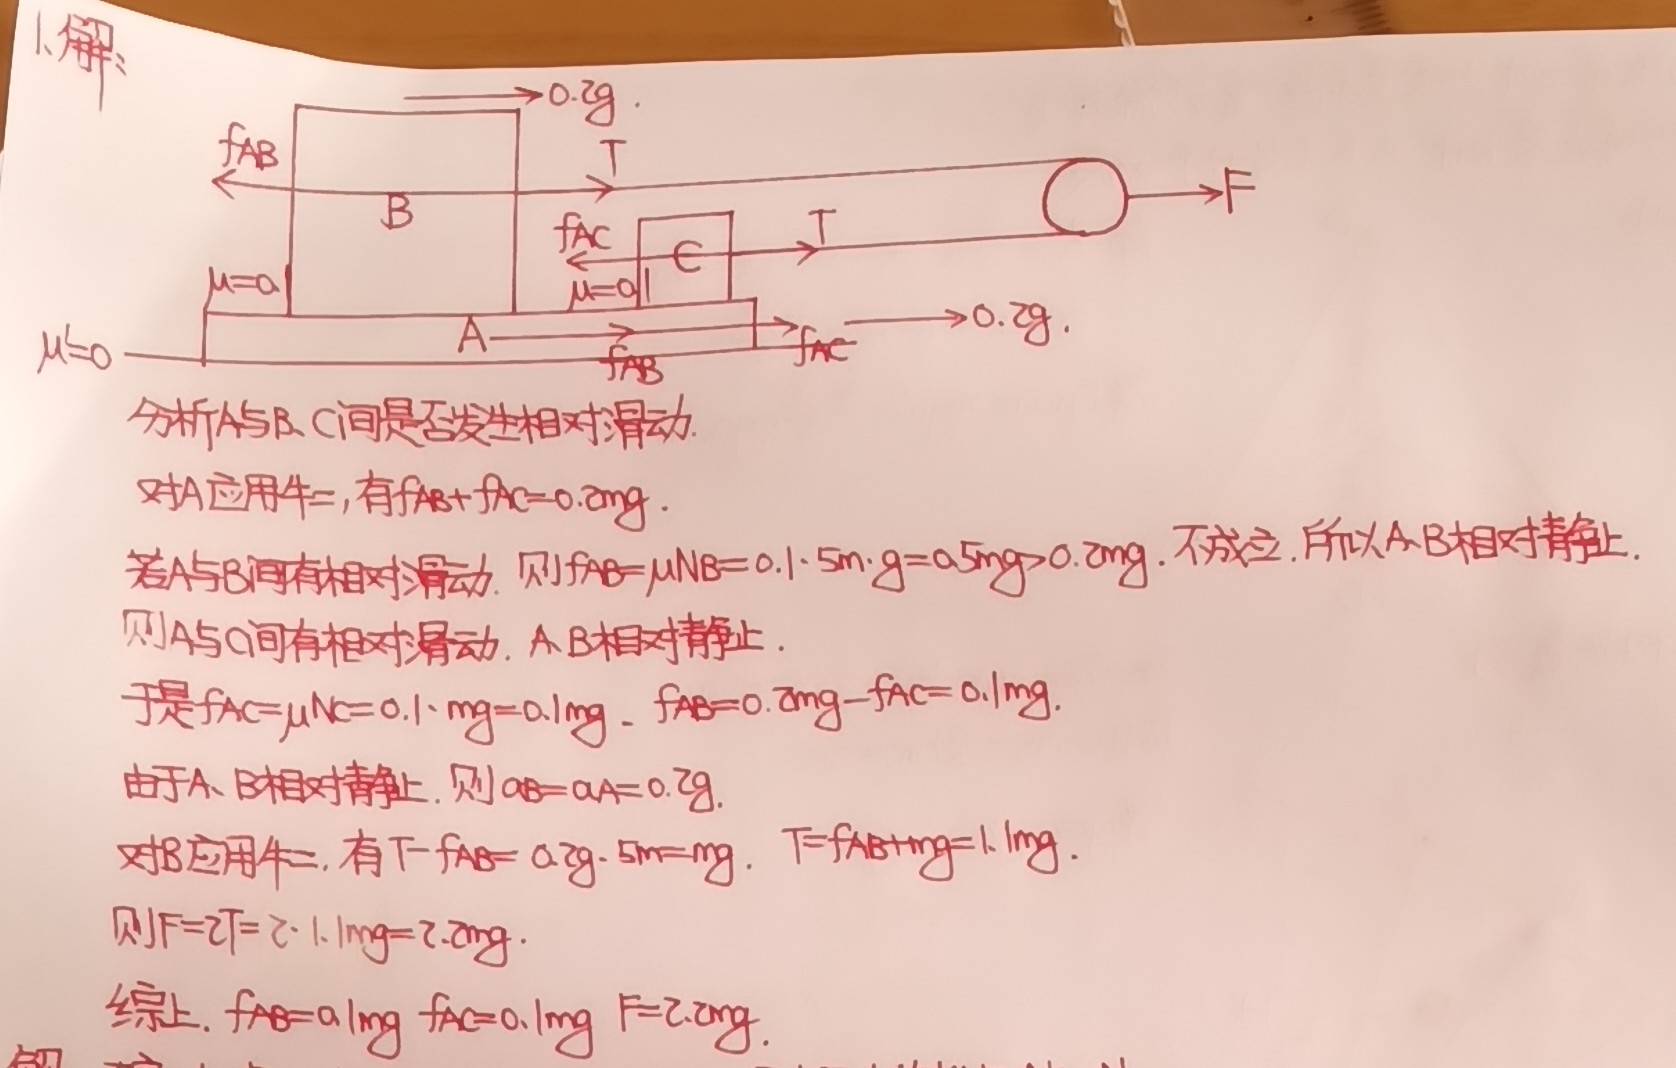 1、解：
0.2g.
fAB
T
B
F
fAC
T
C
μ=0.1
μ=0.1
A
0.2g.
μ'=0
fAB
fAC
分析A与B、C间是否发生相对滑动.
对A应用牛二,有fAB+fAC=0.2mg.
若A与B间有相对滑动. 则fAB=μNB=0.1·5m·g=0.5mg>0.2mg.不成立.所以A、B相对静止.
则A与C间有相对滑动. A、B相对静止.
于是fAC=μNC=0.1·mg=0.1mg. fAB=0.2mg-fAC=0.1mg.
由于A、B相对静止.则aB=aA=0.2g.
对B应用牛二.有T-fAB=0.2g·5m=mg. T=fAB+mg=1.1mg.
则F=2T=2·1.1mg=2.2mg.
综上. fAB=0.1mg fAC=0.1mg F=2.2mg.